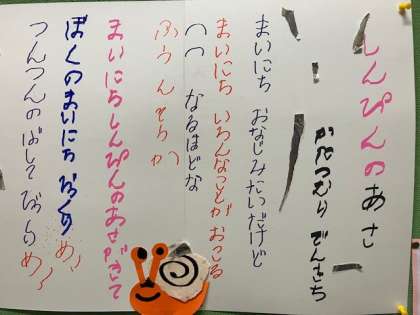 しんぴんのあさ
かたつむり でんきち
まいにち おなじみたいだけど
まいにち いろんなことが おこる
つつ なるほどな
ふうん そうか
まいにちしんぴんのあさがきて
ぼくのまいにち
つんつんのばして